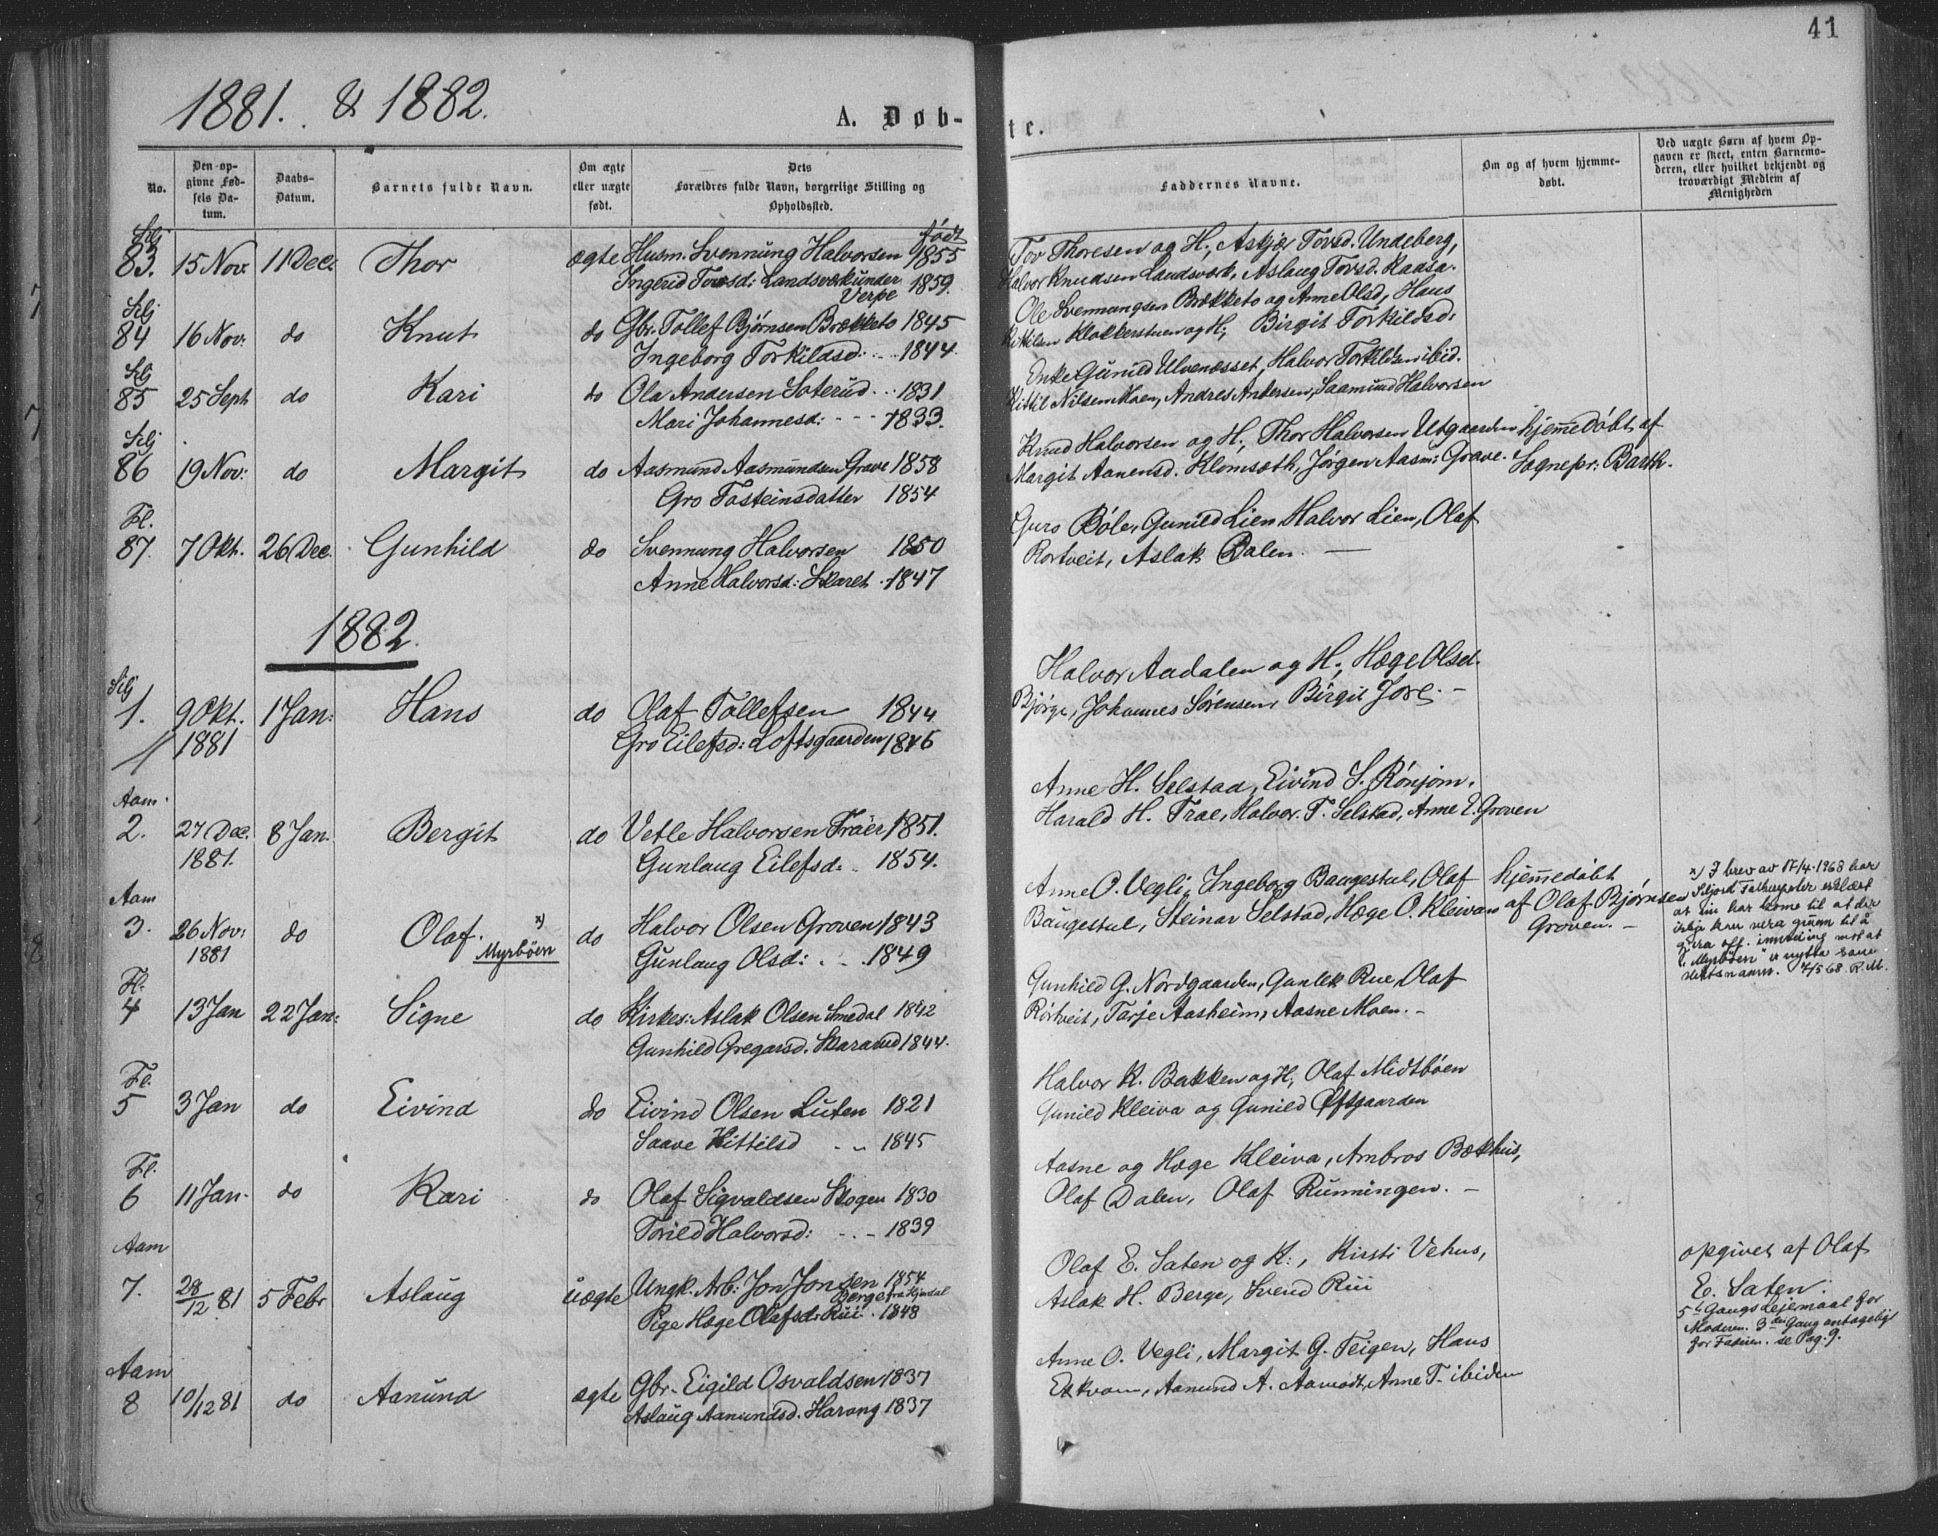 41
1881. & 1882.
A. Døb-
te.
No.
Den opgivne Fødsels Datum.
Daabs-Datum.
Barnets fulde Navn.
Om ægte eller uægte født.
Dets Forældres fulde Navn, borgerlige Stilling og Opholdssted.
Faddernes Navne.
Om og af hvem hjemmedøbt.
Ved uægte Børn af hvem Opgaven er skeet, enten Barnemoderen, eller hvilket bekjendt og troværdigt Medlem af Menigheden
født
Slj
83. 15 Nov. 11 Dec. Thor ægte Husm. Svennung Halvorsen 1855
Ingerid Tovsd: Landsverkunder 1859.
Verpe
Tov Thoresen og H., Askjær Tovsd. Undeberg,
Halvor Knudsen Landsverk, Aslaug Tovsd. Raasa.
Slj
84 16 Nov: do Knut do Gbr. Tollef Bjørnsen Brækketo 1845
Ingeborg Torkildsd: 1844.
Ole Svennungsen Brækketo og Anne Olsd, Hans
Kittilsen Klokkerstuen og H; Birgit Torkildsd:
Slj
85 25 Sept do Kari do Ola Andersen Soterud 1831
Mari Johannesd: 1833.
Enke Gunild Ulvenæsset, Halvor Torkildsen ibid.
Kittil Nilsen Moen, Andres Andersen, Saamund Halvorsen
Slj
86 19 Nov: do Margit do Aasmund Aasmundsen Grave 1858
Gro Tosteinsdatter 1854
Knud Halvorsen og H; Thor Halvorsen Utgaarden
Margit Aanensd. Klomsæth, Jørgen Aasm: Grave.
hjemmedøbt af
Sognepr: Barth.
Fl.
87. 7 Okt. 26 Dec. Gunhild do Svennung Halvorsen 1850
Anne Halvorsd: Skaret 1847
Guro Bøle, Gunild Lien, Halvor Lien, Olaf
Rortveit, Aslak Dalen.
1882.
Slj
1. 9 Okt. 1 Jan: Hans do Olaf Tollefsen 1844
1881 Gro Eilefsd: Loftsgaarden 1846
Halvor Aadalen og H; Hæge Olsd.
Bjørge, Johannes Sørensen, Birgit Jore.
Aam.
2. 27 Dec. 8 Jan. Bergit do Vetle Halvorsen Traer 1851.
1881. Gunlaug Eilefsd: 1854.
Anne H. Selstad, Eivind S. Rónjom.
Harald H. Trae, Halvor T. Selstad, Anne E. Groven
Aam
3. 26 Nov: do Olaf. x) do Halvor Olsen Groven 1843
1881 Myrbøen Gunlaug Olsd: 1849
Anne O. Vegli, Ingeborg Baugestul, Olaf
Baugestul, Steinar Selstad, Hæge O. Kleivan
hjemmedøbt
af Olaf Bjørnsen
Groven.
x) I brev av 17/4-1968 har
Seljord Folkeregister erklært
at ein har kome til at der
ikkje kan vera grunn til å
gjera off. innvending mot at
"Myrbøen" er nytta som
slektsnamn. 4/5 68. R.M.
Fl.
4 13 Jan 22 Jan: Signe do Kirkes: Aslak Olsen Smedal 1842
Gunhild Gregarsd. Skaraud 1844.
Gunhild G. Nordgaarden, Gunlek Rue, Olaf
Rortveit, Tarje Aasheim, Aasne Moen.
Fl.
5 3 Jan do Eivind do Eivind Olsen Luten 1821
Saave Kittilsd 1845
Halvor K. Bakken og H; Olaf Midtbøen
Gunild Kleiva og Gunild Oftsgaarden
Fl.
6 11 Jan. do Kari do Olaf Sigvaldsen Skogen 1830
Torild Halvorsd: 1839
Aasne og Hæge Kleiva, Ambros Bækhus,
Olaf Dalen, Olaf Runningen.
Aam
7. 28/12 81 5 Febr Aslaug uægte Ungk. Arb: Jon Jonsen 1854
Berge fra Hjrdal
Pige Hæge Olafsd: Rui 1848
Olaf E. Saten og K:, Kirsti Vehus,
Aslak H. Berge, Svend Rui
opgivet af Olaf
E. Saten:
5te Gangs Lejermaal for
Moderen. 3die Gang antagelig
for Faderen. se Pag. 9.
Aam
8 10/12 81 do Aanund ægte Gbr. Eigild Osvaldsen 1837
Aslaug Aanundsd. Harang 1837
Anne O. Vegli, Margit G. Teigen, Hans
Ekkvam, Aanund A. Aamodt, Anne T. ibiden